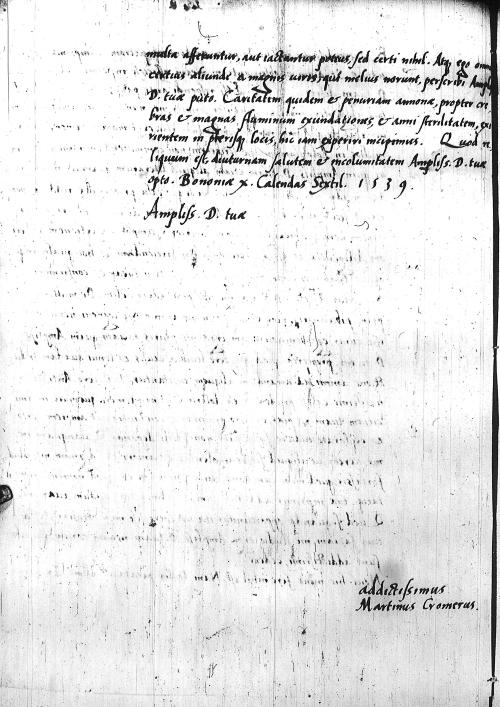 multa afferuntur, aut iactantur potius, sed certi nihil. Atq; ego omn
certius aliunde a magnis viris, qui melius norunt, perscribi Ampl
D. tuæ puto. Caritatem quidem et penuriam annonæ, propter cre
bras et magnas fluminum exundationes, et anni sterilitatem,
rientem in plerisq; locis, hic iam experiri incipimus. Quod re
liquum est, diuturnam salutem et incolumitatem Ampliss. D. tuæ
opto. Bononiæ x. Calendas Sextil. 1539.
Ampliss. D. tuæ
addictissimus
Martinus Cromerus.